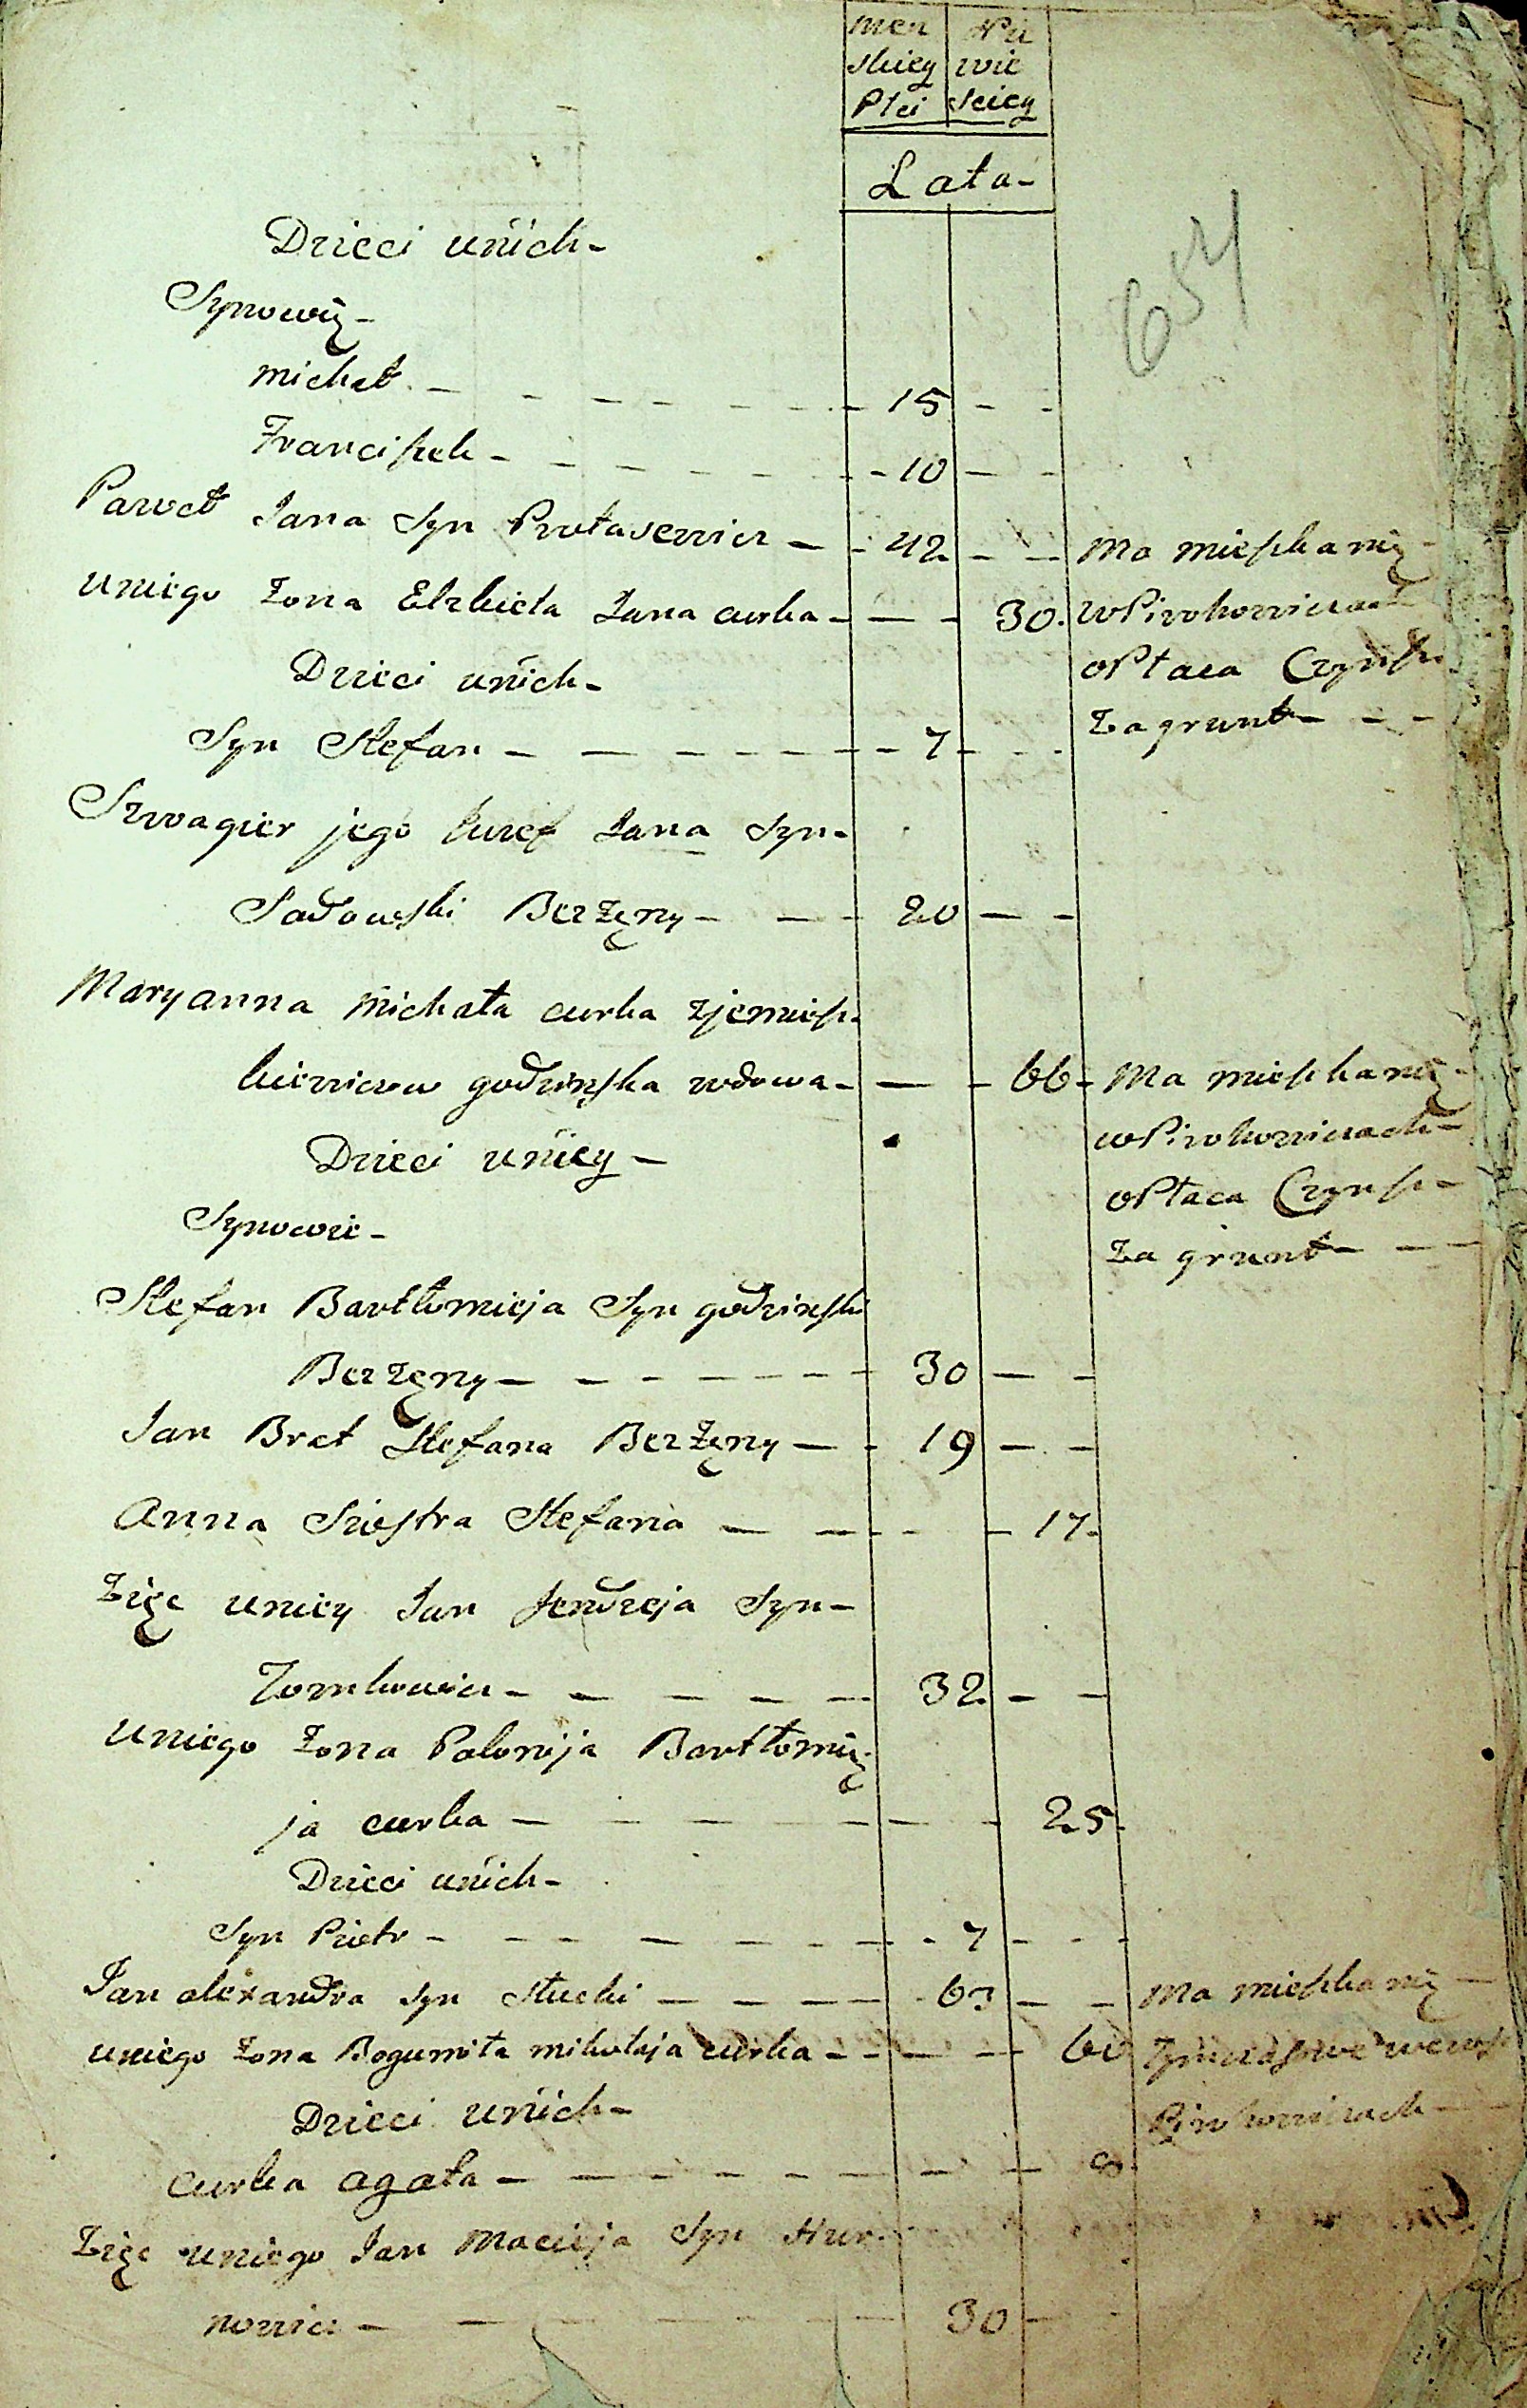 Men Nie
skiey wie
Płci sciey
Lata -
657
Dzieci unich -
Synowię -
Michał - 15 - -
Franciszek - 10 - -
Paweł Jana Syn Protasewicz - 42 - - Ma mieszkanię -
uniego Żona Elzbieta Jana curka - - - 30. w Pirohowiczach
Dzieci unich - oPłaca Czynsz
Syn Stefan - 7 - - za grunt - - -
Szwagier jego Iuzef Jana Syn -
Sadowski Bezżęny - 20 - -
Maryanna Michała curka zjemiesz-
kiewiczow godzinska wdowa - - - 66 - Ma mieszkanię -
Dzieci uniey - w Pirohowiczach -
Synowie - oPłaca Czynsz -
za grunt - - -
Stefan Bartłomieja Syn godzinski
Bezżęny - 30 - -
Jan Brat Stefana Bezżęny - 19 - -
Anna Siostra Stefana - - 17 -
Zięc uniey Jan Jendrzeja Syn -
Tomkowicz - 32 - -
uniego Żona Polonija Bartłomię-
ja curka - - 25 -
Dzieci unich -
Syn Piotr - 7 - -
Jan alexandra Syn Słucki - 63 - - Ma mieszkanię -
uniego Żona Bogumiła mikołaja curka - - - 60
Dzieci unich - Pirohowiczach -
Curka agata - - 8 -
Zięc uniego Jan Macieja Syn Hur-
nowicz - 30 -